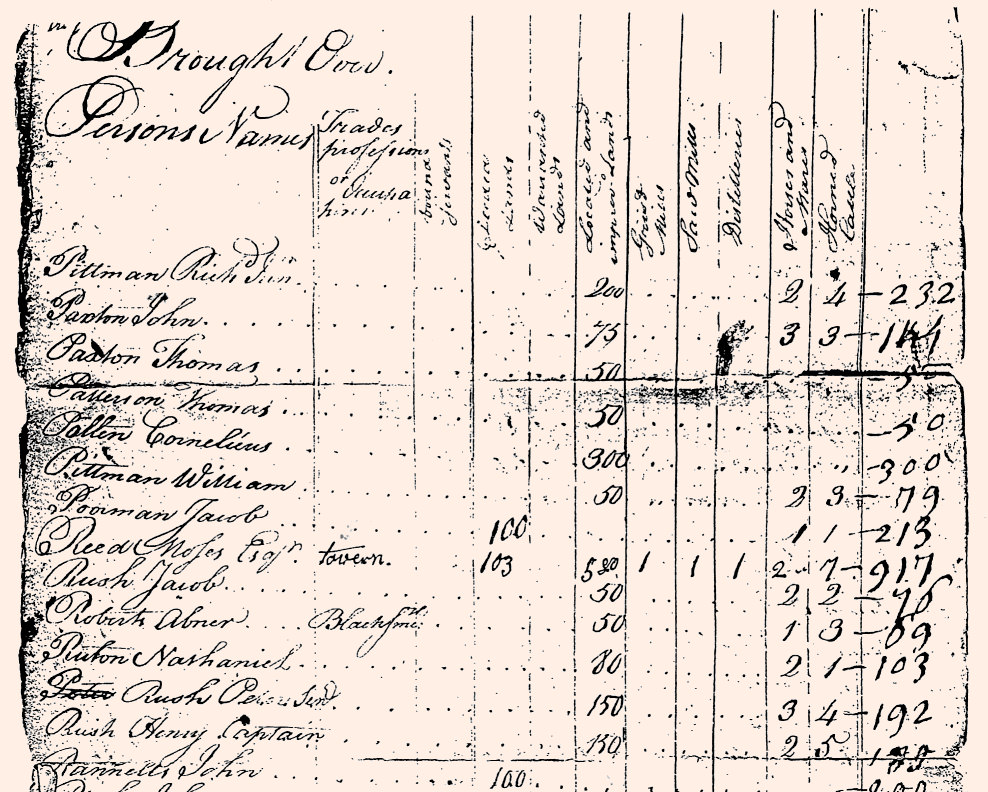 Brought Over.
Persons Names Trades professions or Occupations bound servants Deeded Lands Warranted Lands Located and improv. Lands Grist Mills Saw Mills Distilleries Horses and Mares Horned Cattle
Pittman Richd Junr. 200 2 4 - 232
Paxton John 75 3 3
Paxton Thomas 50
Patterson Thomas 50 - 50
Pallin Cornelious 300 - 300
Pittman William 50 2 3 - 79
Pooiman Jacob 100 1 1 - 213
Reed Moses Esqr. tavern. 103 1 1 1 2 7 - 917
Rush Jacob 50 2 2
Roberts Abner Blacksmt. 50 1 3 - 69
Ruton Nathaniel 80 2 1 - 103
Rush Peter Senr. 150 3 4 - 192
Rush Henry Captain 150 2 5
Rannells John 100